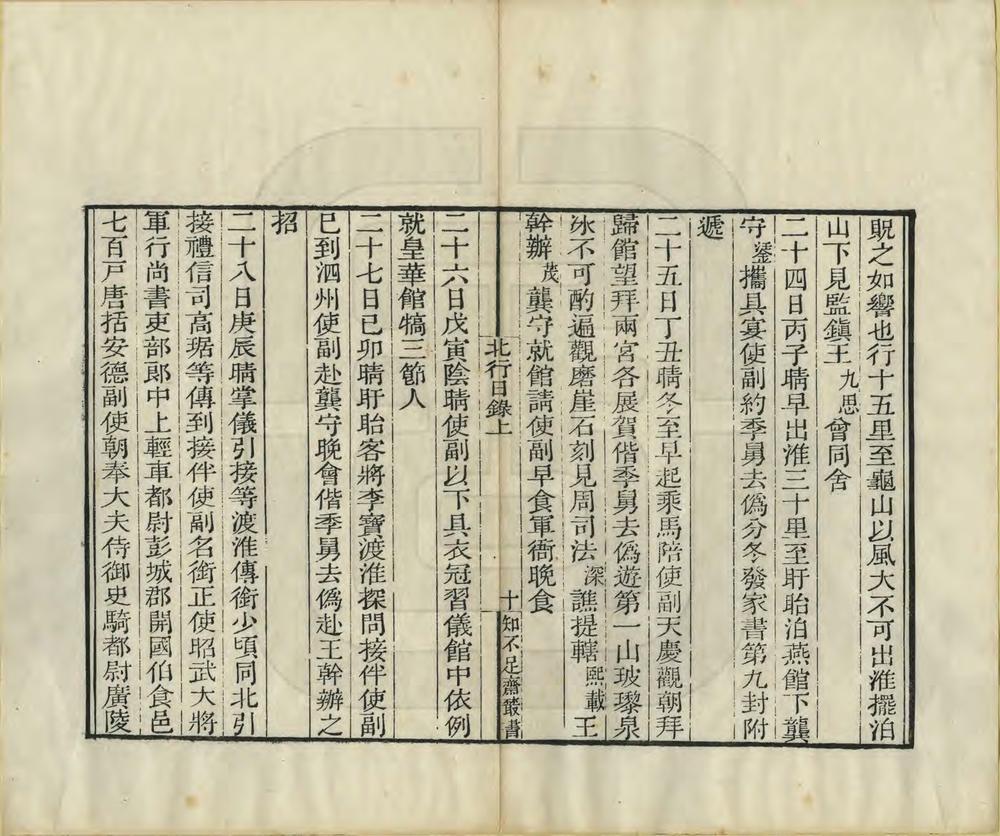 貺之如響也行十五里至龜山以風大不可出淮擺泊
山下見監鎮王九思曾同舍
二十四日丙子晴早出淮三十里至盱眙泊燕館下龔
守鋈攜具宴使副約季舅去僞分冬發家書第九封附
遞
二十五日丁丑晴冬至早起乘馬陪使副天慶觀朝拜
歸館望拜兩宮各展賀偕季舅去僞遊第一山玻瓈泉
冰不可酌遍觀磨崖石刻見周司法深譙提轄熙載王
幹辦茂龔守就館請使副早食軍衙晚食
北行日錄上
十
知不足齋叢書
二十六日戊寅陰晴使副以下具衣冠習儀館中依例
就皇華館犒三節人
二十七日己卯晴盱眙客將李寶渡淮探問接伴使副
已到泗州使副赴龔守晚會偕季舅去僞赴王幹辦之
招
二十八日庚辰晴掌儀引接等渡淮傳銜少頃同北引
接禮信司高琚等傳到接伴使副名銜正使昭武大將
軍行尚書吏部郎中上輕車都尉彭城郡開國伯食邑
七百戶唐括安德副使朝奉大夫侍御史騎都尉廣陵